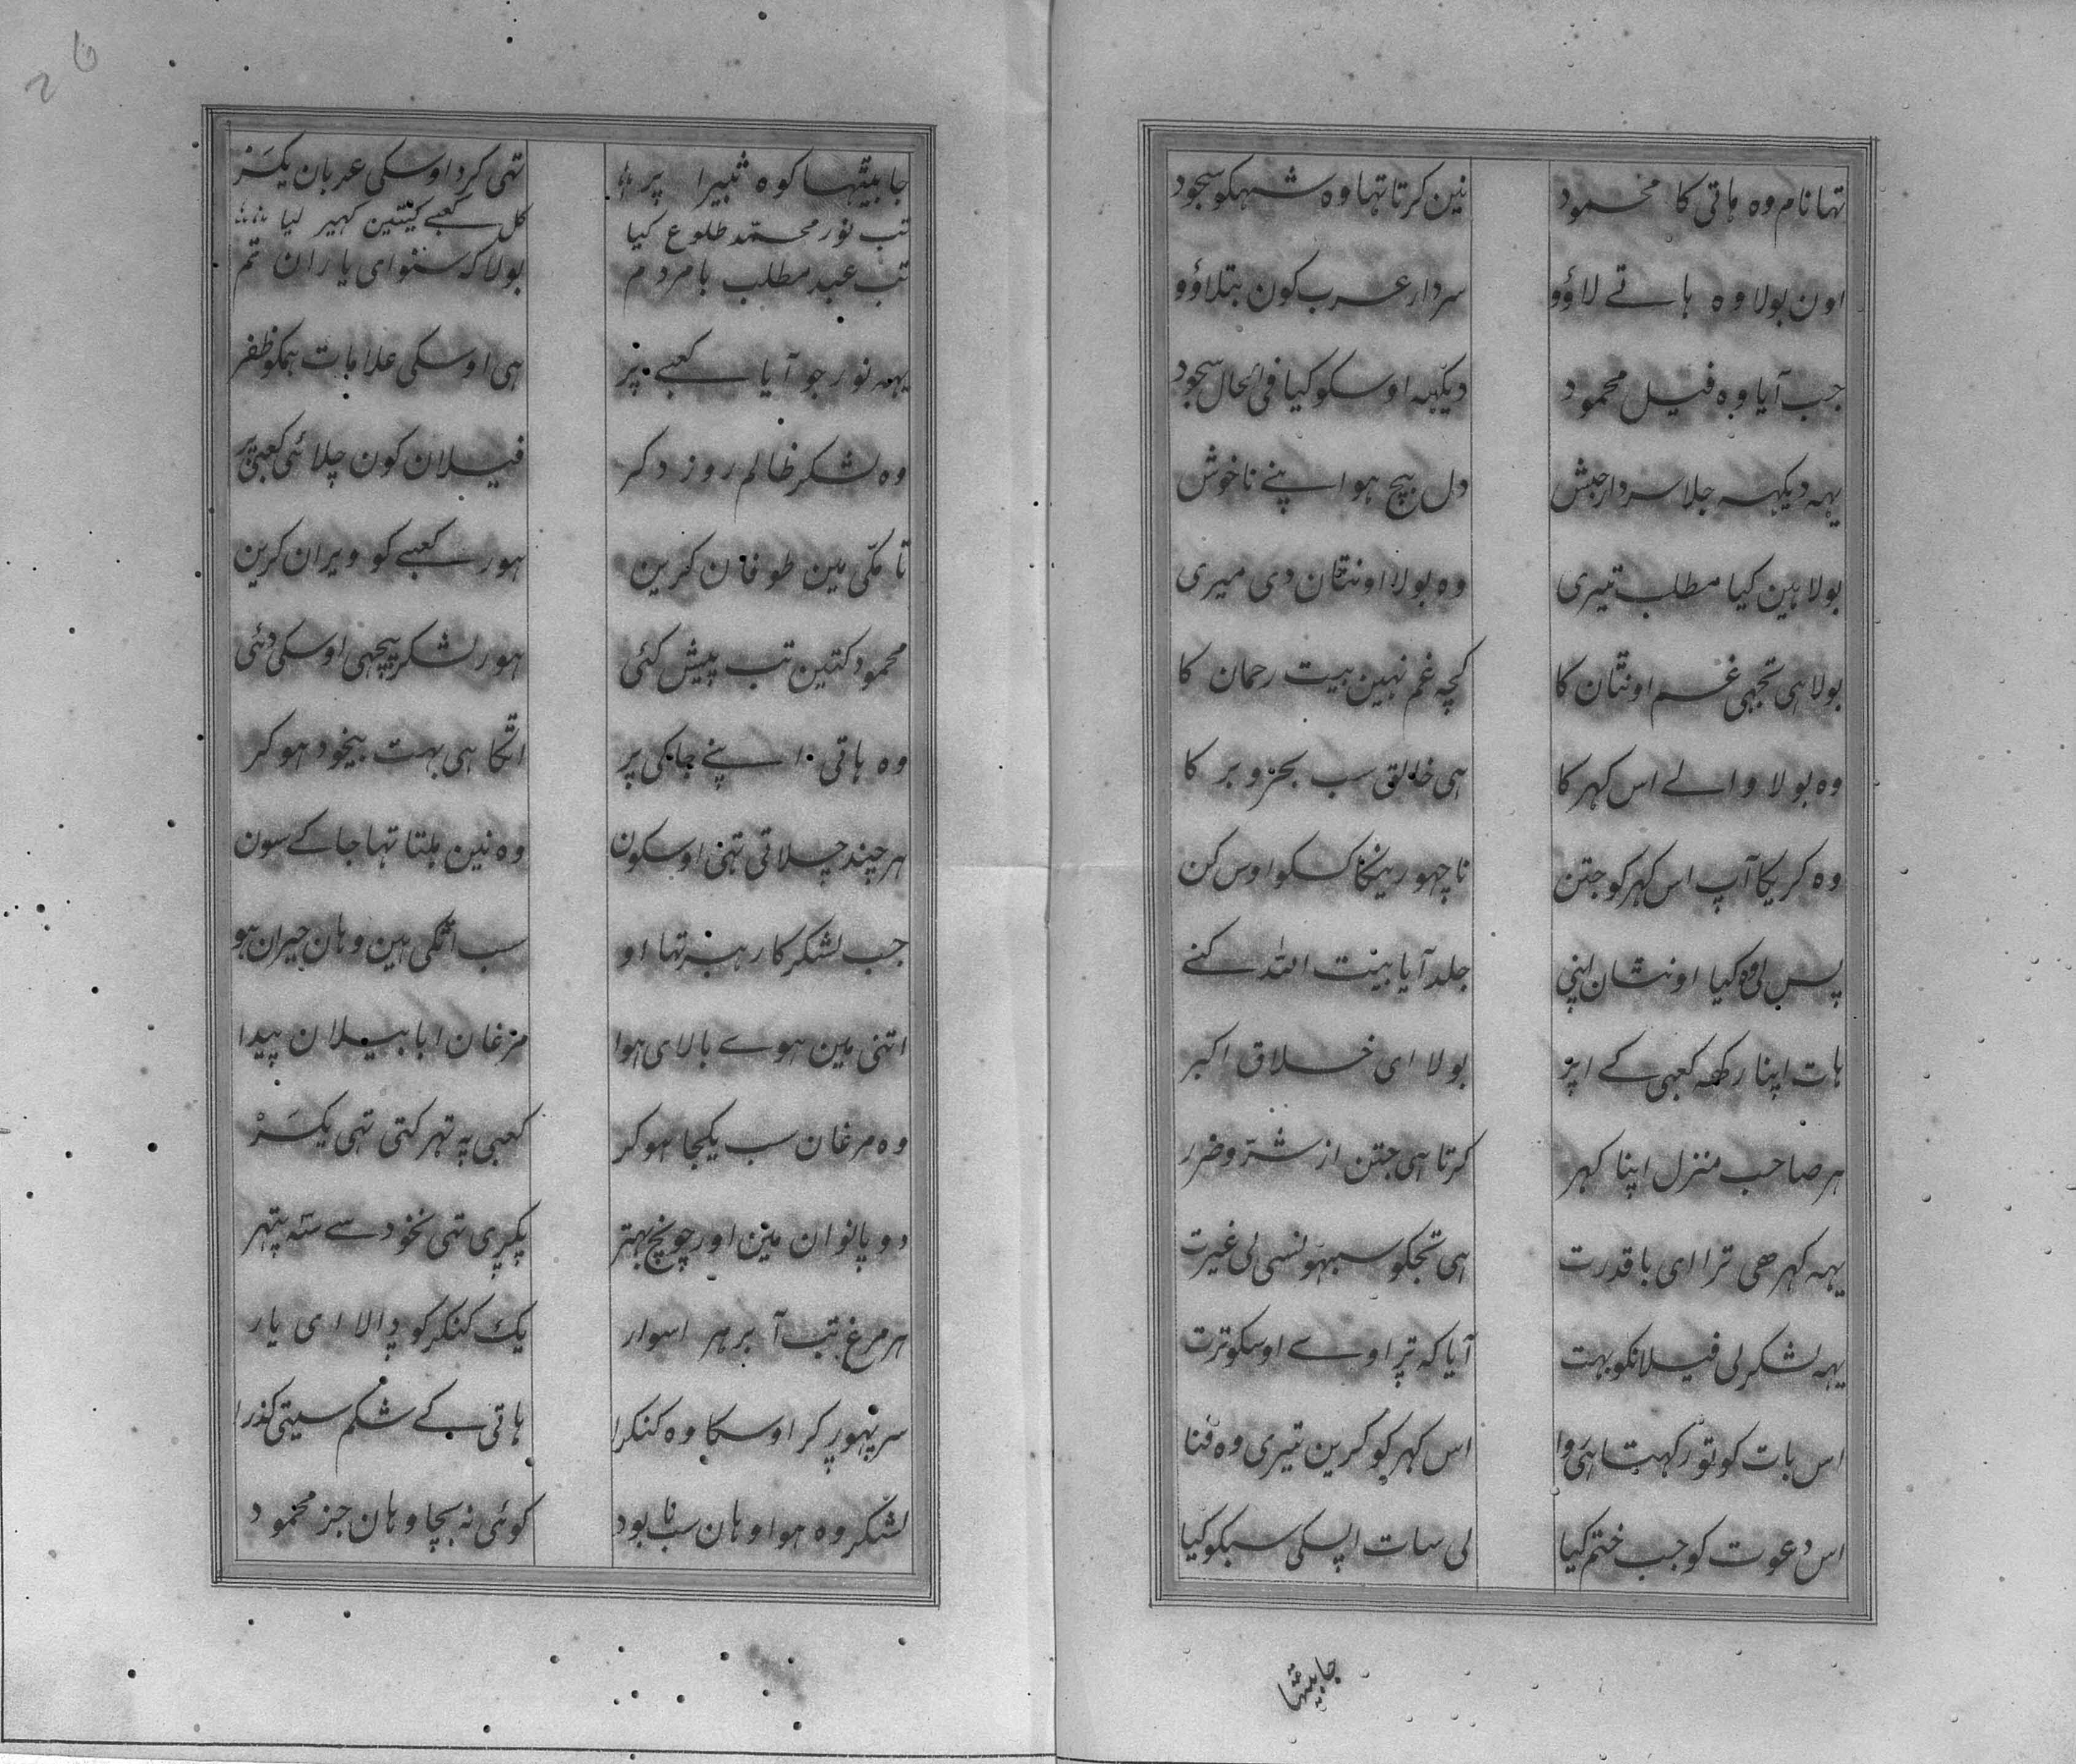 تہا نام وہ ہاتی کا محمود نین کرتا تہا وہ شہکو سجود
اون بولا وہ ہاتے لاؤو سردار عرب کون بتلاؤو
جب آیا وہ فیل محمود دیکہہ اوسکو کیا فی الحال سجود
یہہ دیکہہ جلا سردار حبش دل بیچ ہوا اپنے ناخوش
بولا ہین کیا مطلب تیری وہ بولا اونتان دی میری
بولا ہی تجہی غم اونتان کا کچہ غم نہین بیت رحمان کا
وہ بولا والے اس کہر کا ہی خالق سب بحر و بر کا
وہ کریکا آپ اس کہر کو جتن نا چہوریکا کسکو اوس کن
پس لی وہ کیا اونتان اپنی جلد آیا بیت اللہ کنے
ہات اپنا رکہہ کعبی کے اپر بولا ای خلاق اکبر
ہر صاحب منزل اپنا کہر کرتا ہی جتن از شر و ضرر
یہہ کہر ھی ترا ای با قدرت ہی تجکو سبہونسی لی غیرت
یہہ لشکر لی فیلانکو بہت آیا کہ تراوے اوسکو ترت
اس بات کو تو رکہتا ہی روا اس کہر کو کرین تیری وہ فنا
اس دعوت کو جب ختم کیا لی سات اپسکی سبکو کیا
جا بیتہا
جا بیتہا کوہ ثبیرا پر تہی کرد اوسکی عربان یکسر
تب نور محمد طلوع کیا کل کعبے کیتین کہیر لیا
تب عبد مطلب با مردم بولا کہ سنو ای یاران تم
یہہ نور جو آیا کعبے پر ہی اوسکی علامات ہمکو ظفر
وہ لشکر ظالم روز دکر فیلان کون چلائی کعبی پر
تا مکی مین طوفان کرین ہور کعبے کو ویران کرین
محمود کتین تب پیش کئی ہور لشکر پیچہی اوسکی دئی
وہ ہاتی اپنے جاکی پر اتکا ہی بہت بیخود ہو کر
ہر چند چلاتی تہی اوسکون وہ نین ہلتا تہا جاکے سون
جب لشکر کا رہبر تہا او سب اتکی ہین وہان حیران ہو
اتنی مین ہوے بالای ہوا مرغان ابابیلان پیدا
وہ مرغان سب یکجا ہو کر کعبی پہ تہرکتی تہی یکسر
دو پانوان مین اور چونچ بہتر پکری تہی نخود سے ستہ پتہر
ہر مرغ تب آ بر ہر اسوار یک کنکر کو دالا ای یار
سر پہور کر اوسکا وہ کنکرا ہاتی کے شکم سیتی کذرا
لشکر وہ ہوا وہان سب نابود کوئی نہ بچا وہان جز محمود